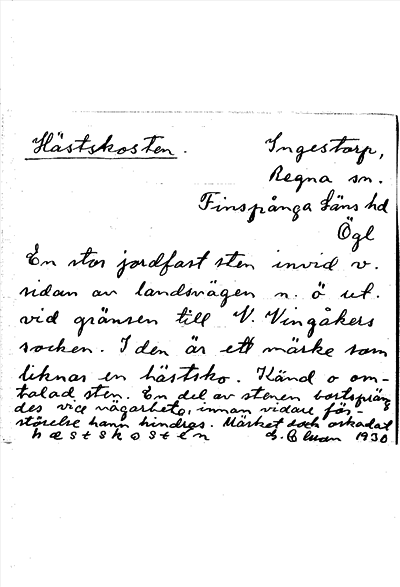 Hästskosten.
Ingestorp,
Regna sn.
Finspånga Läns hd
Ögl
En stor jordfast sten invid v.
sidan av landsvägen n. ö ut.
vid gränsen till V. Vingåkers
socken. I den är ett märke som
liknar en hästsko. Känd o om-
talad sten. En del av stenen bortsprän
des vid vägarbete, innan vidare för-
störelse hann hindras. Märket dock oskadat
hæstskosten 1930